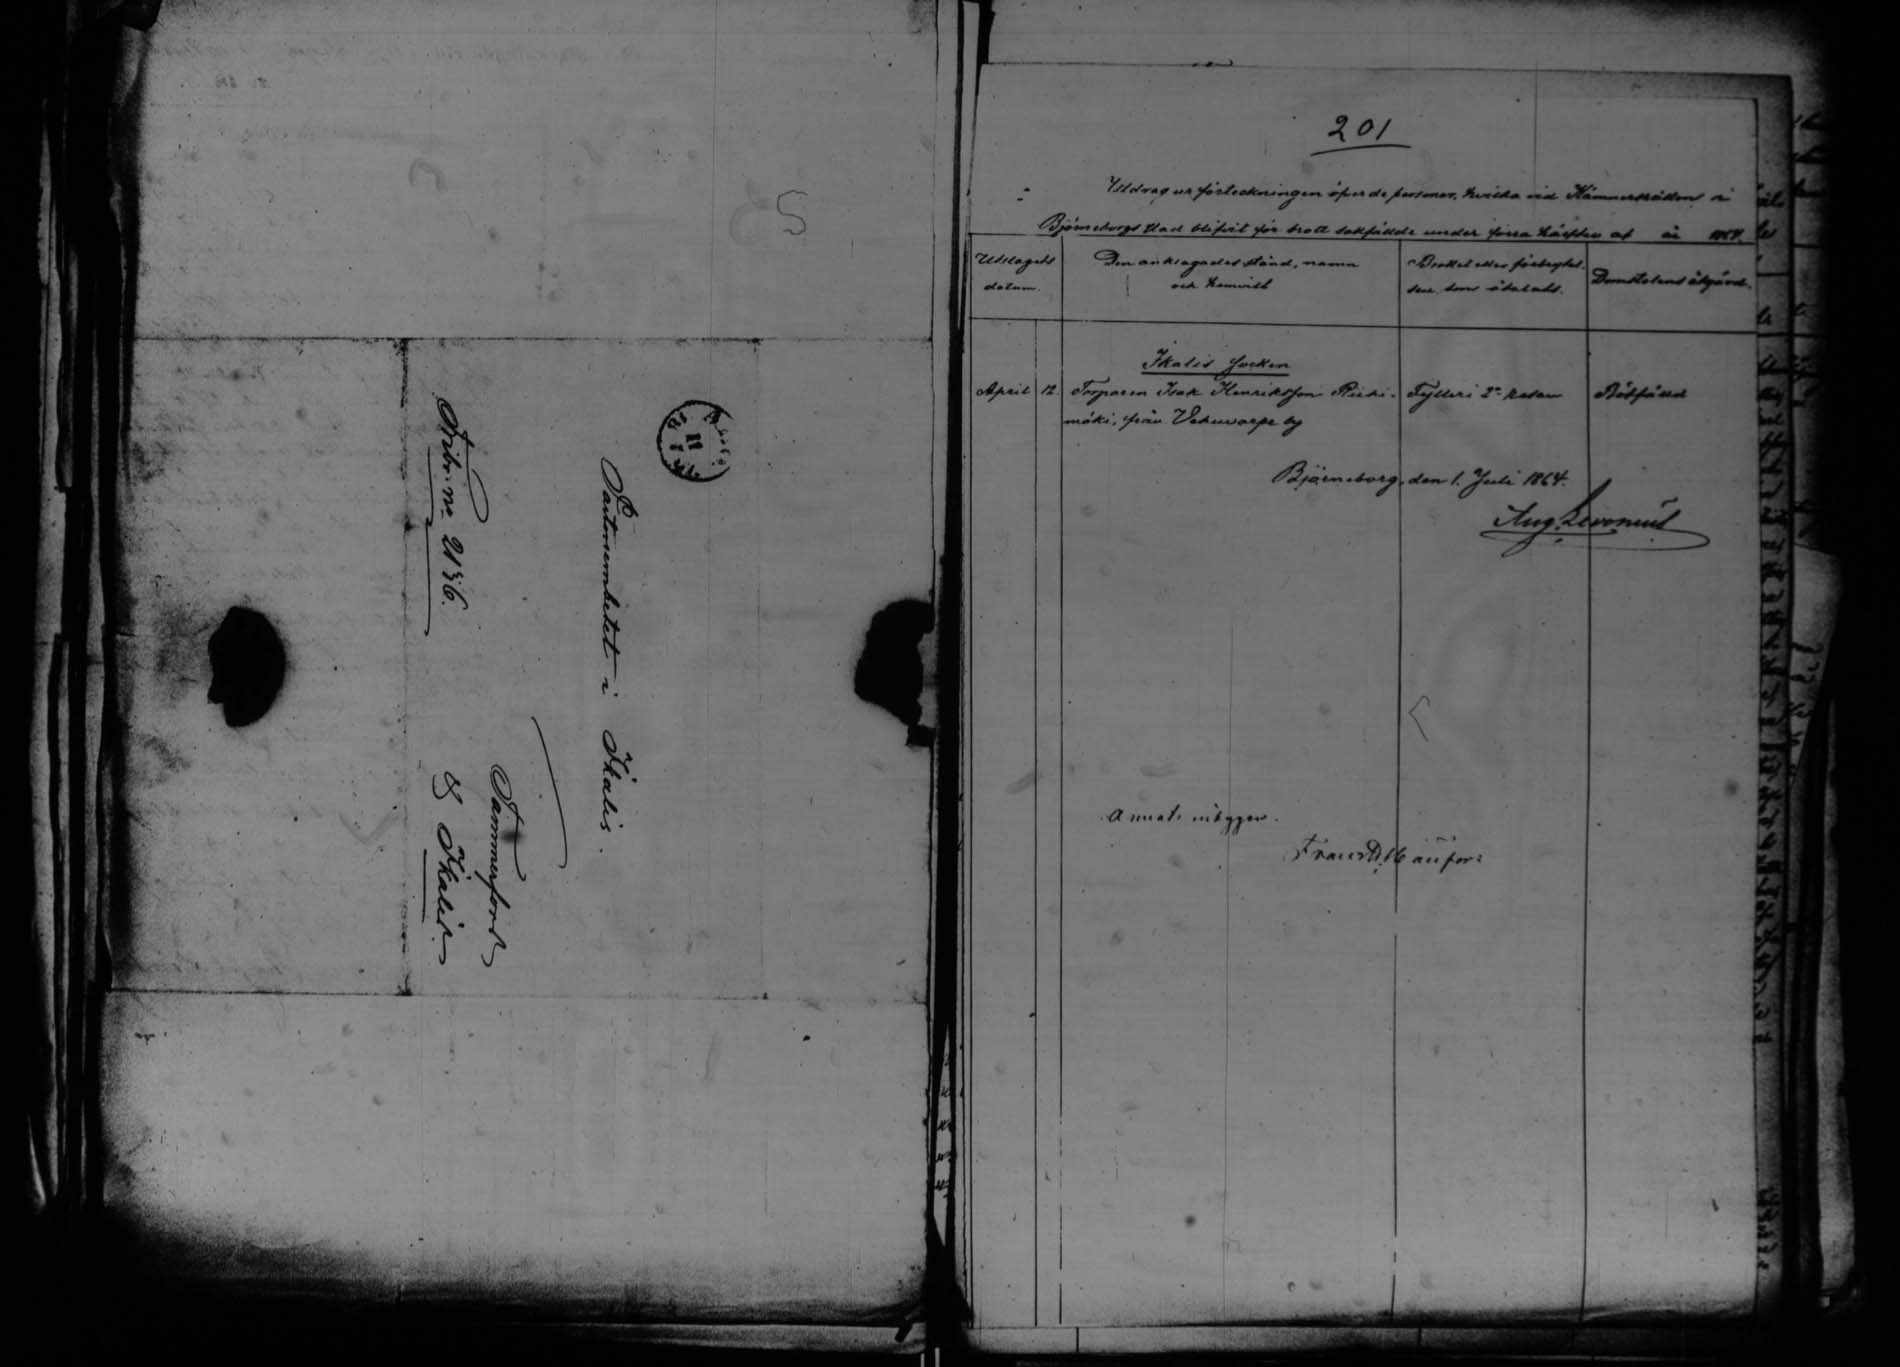 Fribr. no. 2136.
Pastorsembetet i Ikalis.
Tammerfors
& Ikalis.
201
Utdrag ur förteckningen öfver de personer, hvilka vid Kämnersrätten i
Björneborgs stad blifvit för brott sakfällde under förra hälften af år 1864.
Utslagets
datum.
Den anklagades stånd, namn
och hemvist
Brottet eller förbrytel-
sen, som åtalats.
Domstolens åtgärd.
Ikalis socken
April 12. Torparen Isak Henriksson Riihi-
mäki, från Vehuvarpe by
Fylleri 2a resan
Bötfälld
Björneborg, den 1. Juli 1864.
Aug.